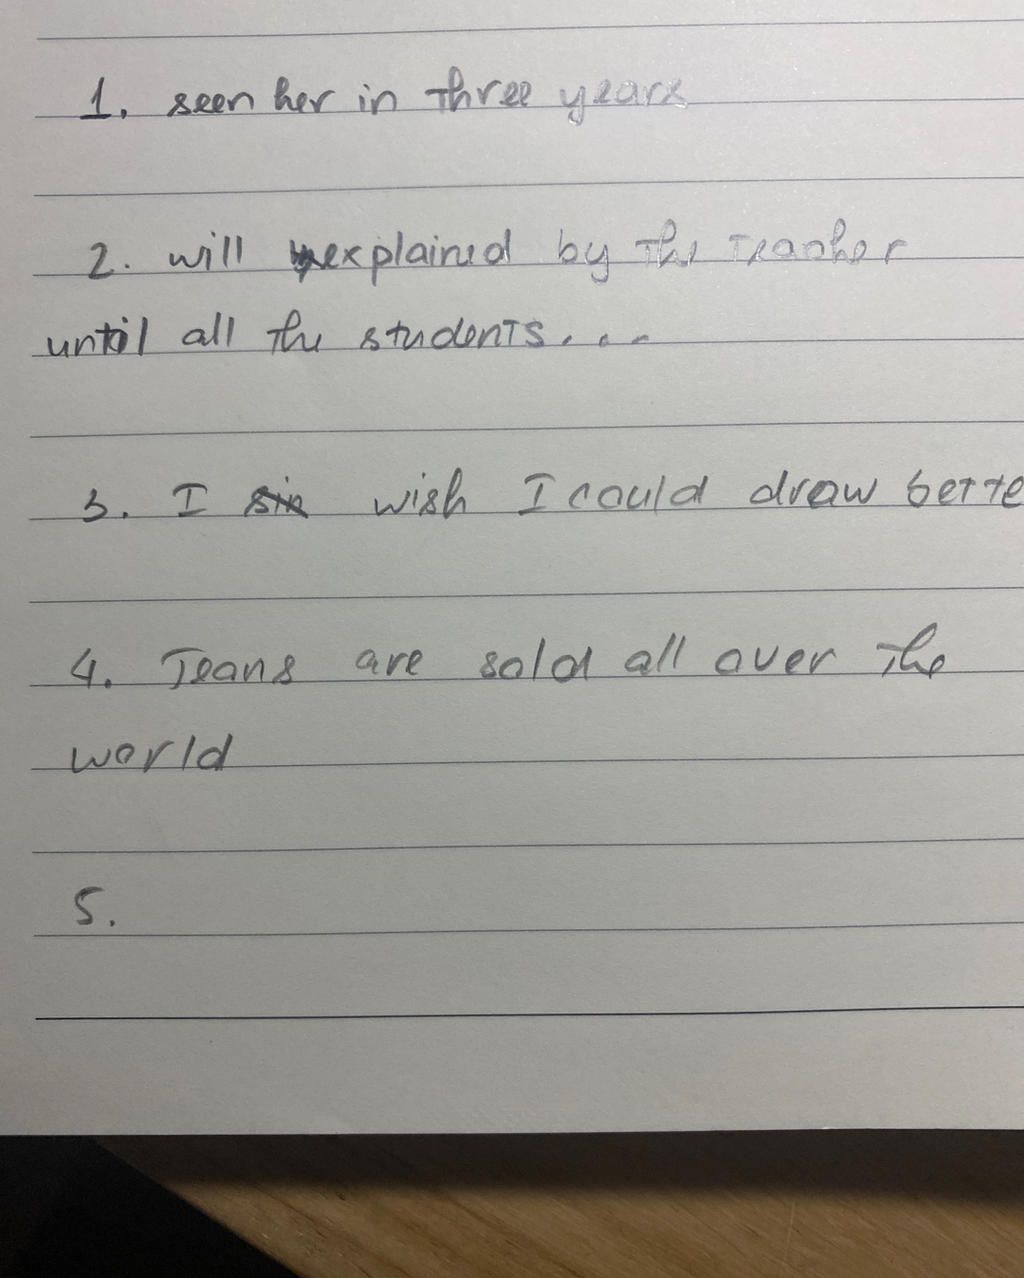 1. seen her in three years
2. will explained by the teacher
until all the students...
3. I wish I could draw bette
4. Jeans are sold all over the
world
5.